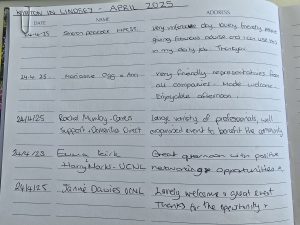 KIRTON IN LINDSEY - APRIL 2025
DATE NAME ADDRESS
24.4.25 Sharon peacock HPCST. Very informative day, lovely friendly
giving advice and can use this
in my daily job. Thankyou
24.4.25 Marianne Ogg = Ann very friendly representatives from
all companies. Made welcome.
Enjoyable afternoon.
24/4/25 Rachel Mumby - Carers Large variety of professionals, well
Support + Dementia Direct organised event to benefit the community
24/4/25 Emma Kirk Great afternoon with positive
Harry - UCNL networking opportunities
24/4/25 Jamie Davies UCNL Lovely welcome & great event
Thanks for the opportunity